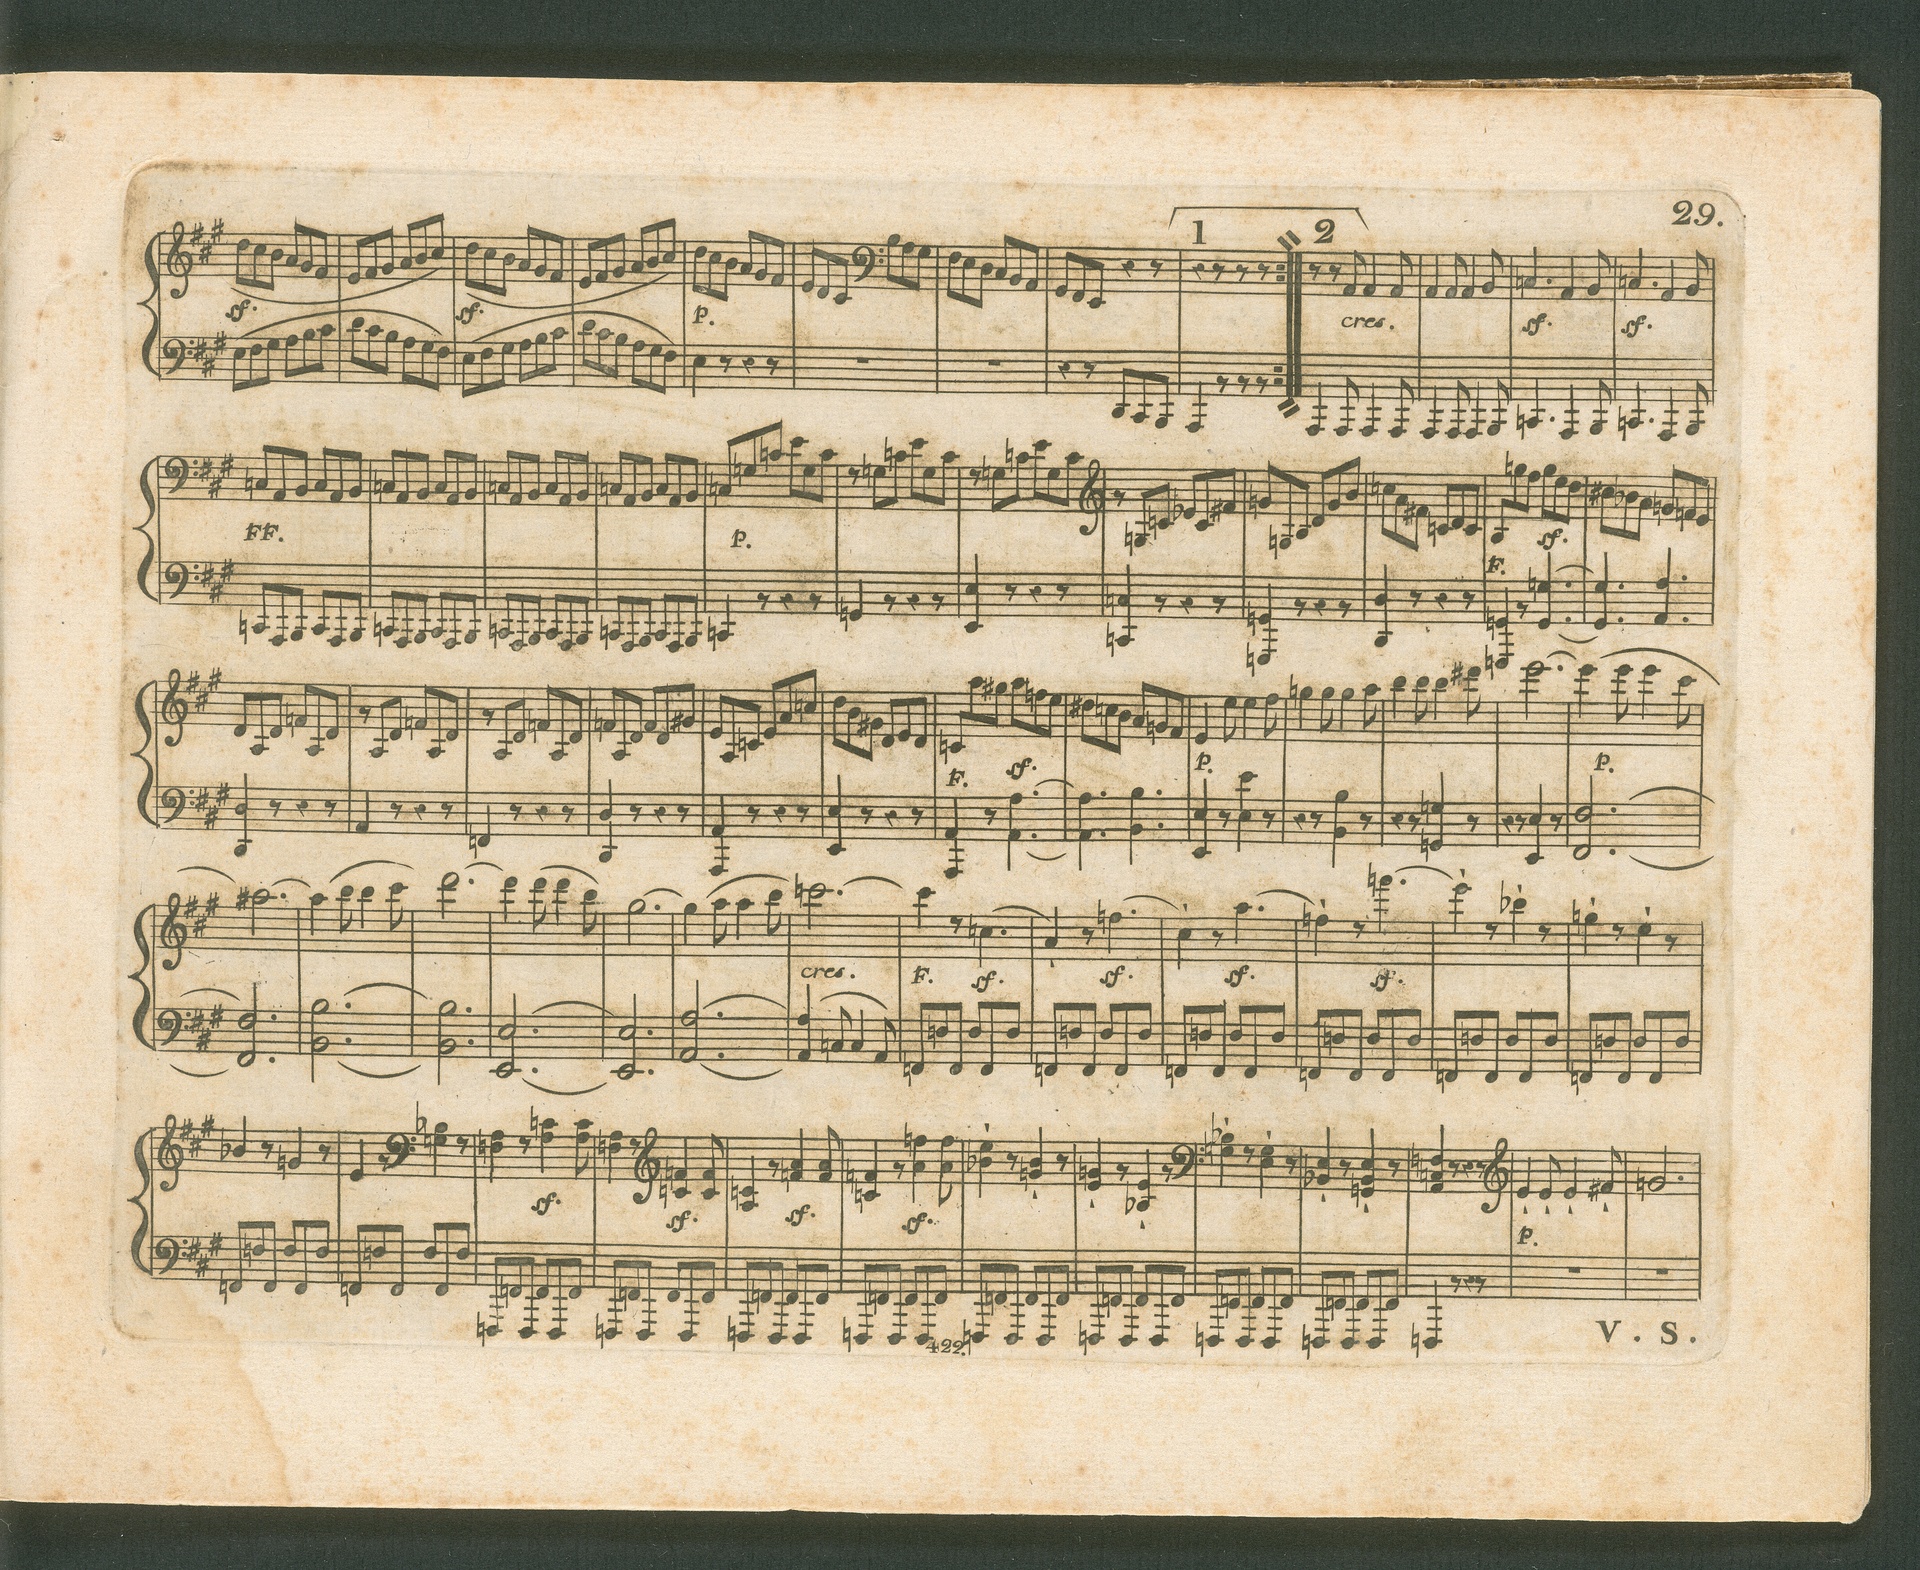 29.
1 2
sf. sf. p. cres. sf. sf.
FF. p. F. sf.
F. sf. p. p.
cres. F. sf. sf. sf. sf.
sf. sf. sf. sf. p.
V. S.
422.